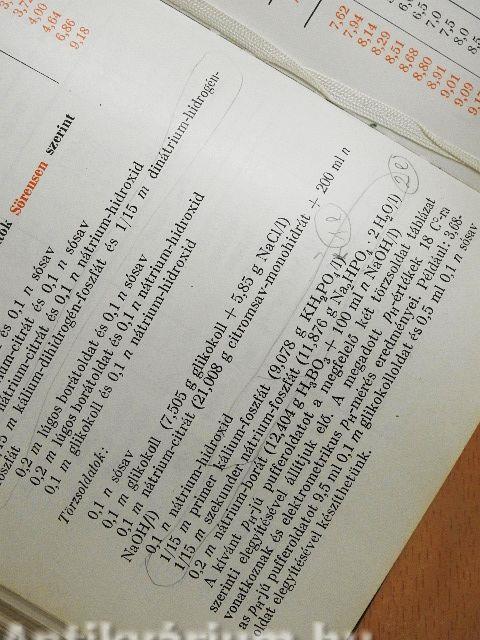 3,7
4,00
4,64
6,86
9,18
7,62
7,94
8,14
8,29
8,51
8,68
8,80
8,91
9,01
9,09
9,17
6,5
7,0
7,5
8,0
8,5
Sörensen szerint
és 0,1 n sósav
-citrát és 0,1 n sósav
nátrium-citrát és 0,1 n nátrium-hidroxid
1/15 m kálium-dihidrogén-foszfát és 1/15 m dinátrium-hidrogén-
foszfát
0,2 m lúgos borátoldat és 0,1 n sósav
0,2 m lúgos borátoldat és 0,1 n nátrium-hidroxid
0,1 m glikokoll és 0,1 n nátrium-hidroxid
Törzsoldatok:
0,1 n sósav
0,1 m glikokoll (7,505 g glikokoll + 5,85 g NaCl/l)
0,1 m nátrium-citrát (21,008 g citromsav-monohidrát + 200 ml n
NaOH/l)
0,1 n nátrium-hidroxid
1/15 m primer kálium-foszfát (9,078 g KH₂PO₄/l)
1/15 m szekunder nátrium-foszfát (11,876 g Na₂HPO₄ · 2 H₂O/l)
0,2 m nátrium-borát (12,404 g H₃BO₃ + 100 ml n NaOH/l)
A kívánt pH-jú pufferoldatot a megfelelő két törzsoldat táblázat
szerinti elegyítésével állítjuk elő. A megadott pH-értékek 18 C°-ra
vonatkoznak és elektrometrikus pH-mérés eredményei. Például: 3,68-
as pH-jú pufferoldatot 9,5 ml 0,1 m glikokolloldat és 0,5 ml 0,1 n sósav
oldat elegyítésével készíthetünk.
Antikvárium.hu